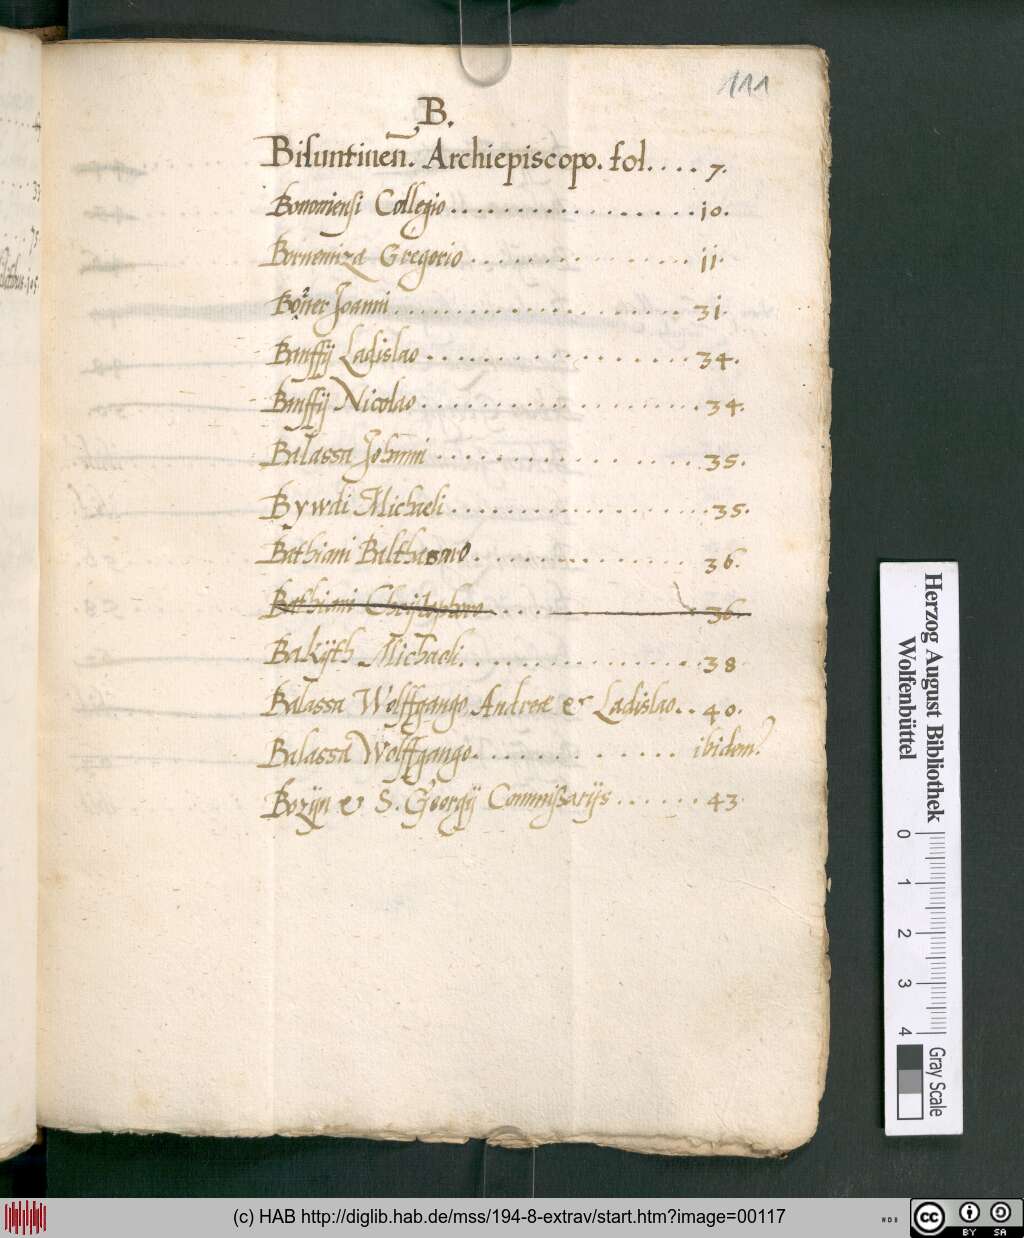 111
B.
Bisuntinen̄. Archiepiscopo. fol.... 7.
Bononiensi Collegio................10.
Bornemiza Gregorio............11.
Joanni....................31.
Banffÿ Ladislao..................34.
Banffÿ Nicolao...................34.
Balassa Johanni................35.
Bywdi Michaeli.................35.
Bathiani Balthasaro.............36.
Bathiani Christophoro............36.
Bakÿth Michaeli................38.
Balassa Wolffgango Andreæ & Ladislao..40.
Balassa Wolffgango.............ibidem.
Bozÿn & S. Georgÿ Commissarÿs......43.
33
75
105
Herzog August Bibliothek
Wolfenbüttel
0 1 2 3 4
Gray Scale
(c) HAB http://diglib.hab.de/mss/194-8-extrav/start.htm?image=00117
WDB
cc BY SA